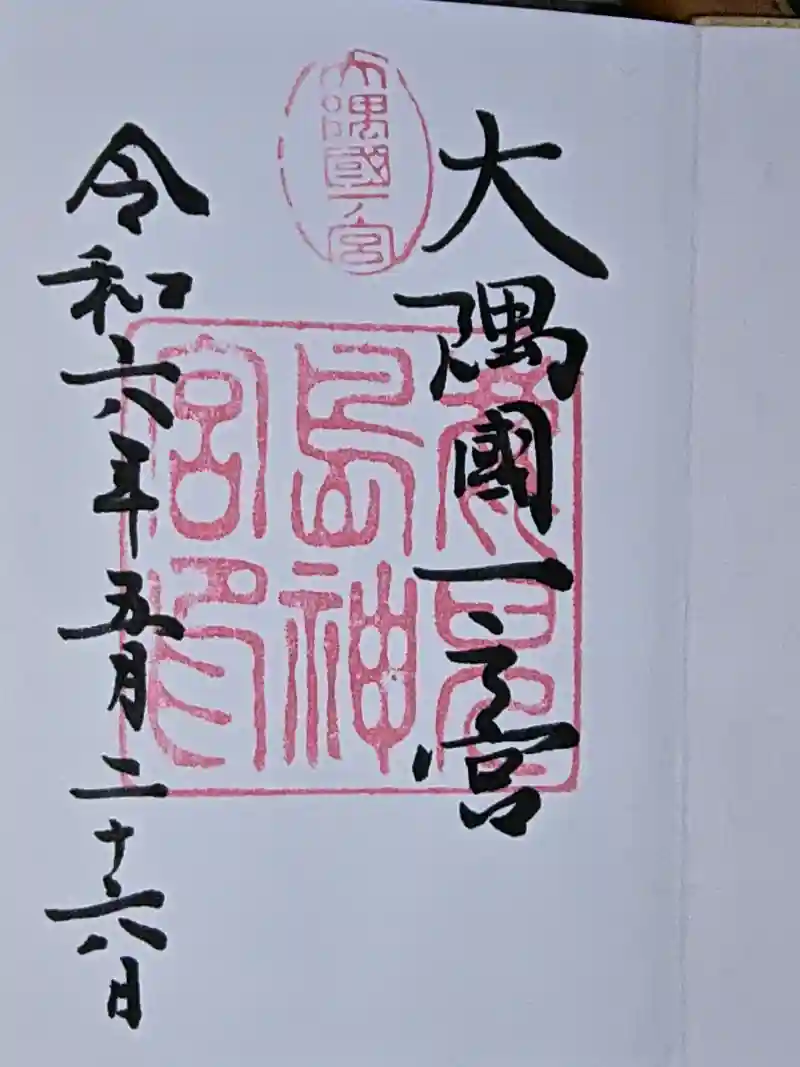 大隅國一之宮
大隅國一ノ宮
鹿兒
島神
宮印
令和六年五月二十六日